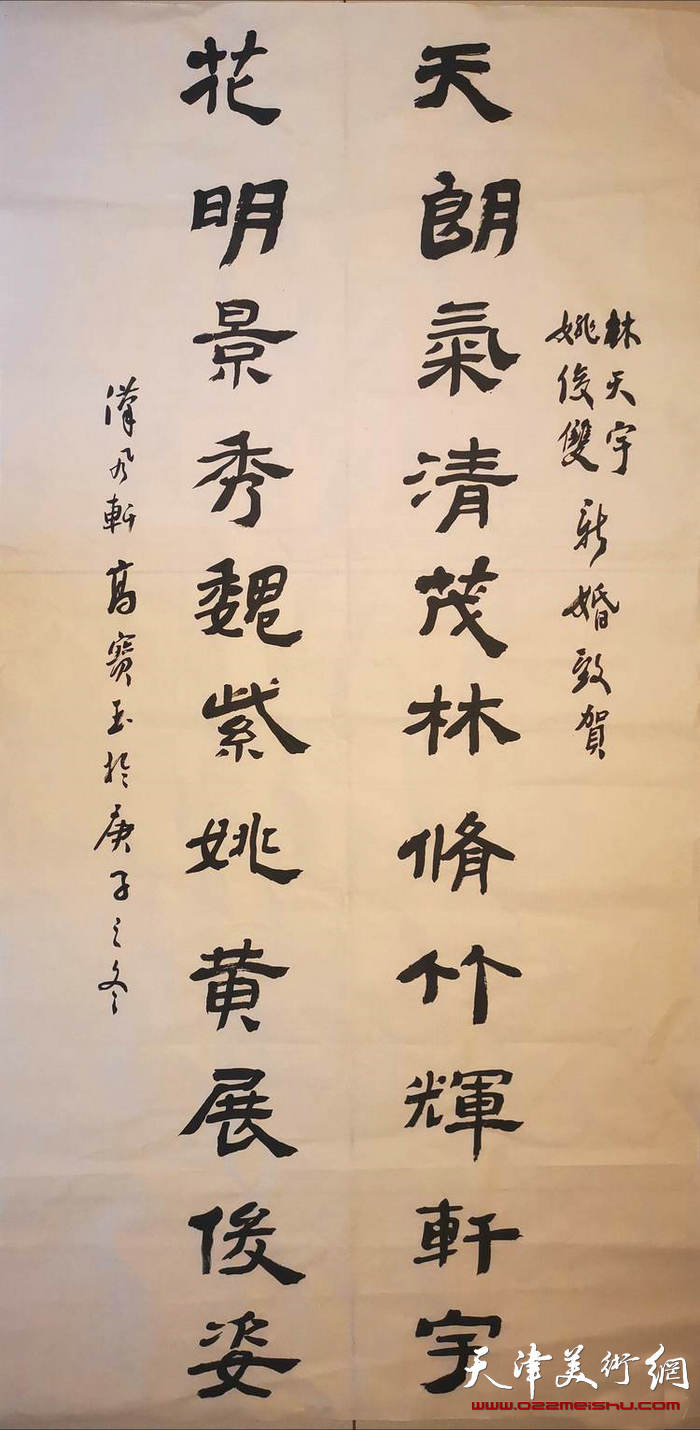 林天宇
姚俊雙 新婚致賀
天朗氣清茂林脩竹輝軒宇
花明景秀魏紫姚黄展俊姿
漢風軒高寶玉於庚子之冬
天津美術網
www.022meishu.com